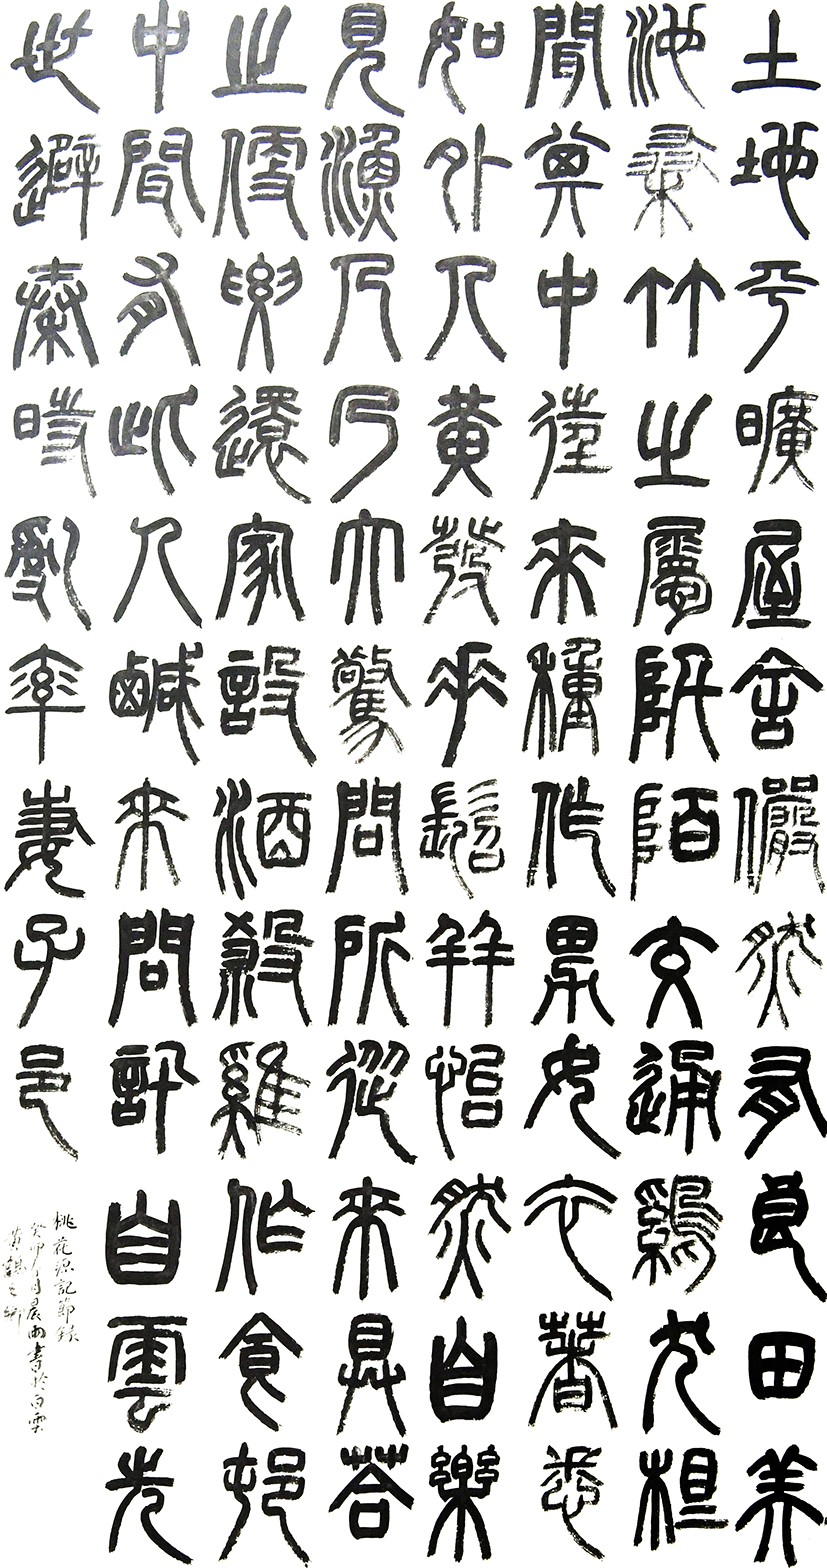 土地平曠屋舍儼然有良田美
池桑竹之屬阡陌交通鷄犬相
聞其中往來種作男女衣著悉
如外人黃髮垂髫並怡然自樂
見漁人乃大驚問所從來具答
之便要還家設酒殺雞作食村
中聞有此人鹹來問訊自雲先
世避秦時亂率妻子邑
桃花源記節錄
癸卯月晨雨書於白雲